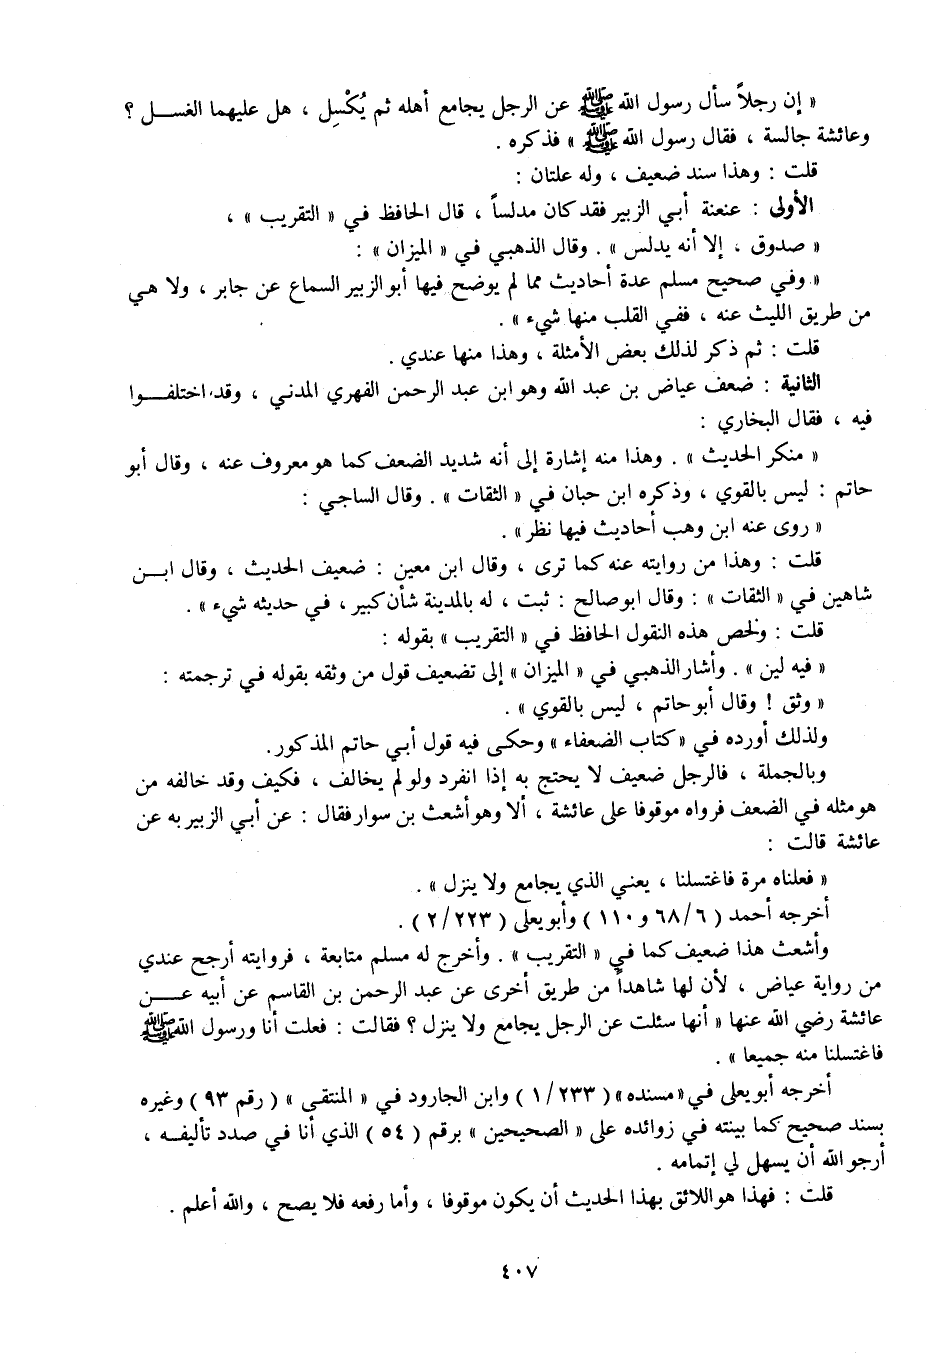 « إن رجلاً سأل رسول الله ﷺ عن الرجل يجامع أهله ثم يُكْسِل ، هل عليهما الغســل ؟
وعائشة جالسة ، فقال رسول الله ﷺ » فذكره .
قلت : وهذا سند ضعيف ، وله علتان :
الأولى : عنعنة أبي الزبير فقد كان مدلساً ، قال الحافظ في « التقريب » ،
« صدوق ، إلا أنه يدلس » . وقال الذهبي في « الميزان » :
« وفي صحيح مسلم عدة أحاديث مما لم يوضح فيها أبو الزبير السماع عن جابر ، ولا هي
من طريق الليث عنه ، ففي القلب منها شيء » .
قلت : ثم ذكر لذلك بعض الأمثلة ، وهذا منها عندي .
الثانية : ضعف عياض بن عبد الله وهو ابن عبد الرحمن الفهري المدني ، وقد اختلفــوا
فيه ، فقال البخاري :
« منكر الحديث » . وهذا منه إشارة إلى أنه شديد الضعف كما هو معروف عنه ، وقال أبو
حاتم : ليس بالقوي ، وذكره ابن حبان في « الثقات » . وقال الساجي :
« روى عنه ابن وهب أحاديث فيها نظر » .
قلت : وهذا من روايته عنه كما ترى ، وقال ابن معين : ضعيف الحديث ، وقال ابــن
شاهين في « الثقات » : وقال ابو صالح : ثبت ، له بالمدينة شأن كبير ، في حديثه شيء » .
قلت : ولخص هذه النقول الحافظ في « التقريب » بقوله :
« فيه لين » . وأشار الذهبي في « الميزان » إلى تضعيف قول من وثقه بقوله في ترجمته :
« وثق ! وقال أبو حاتم ، ليس بالقوي » .
ولذلك أورده في « كتاب الضعفاء » وحكى فيه قول أبي حاتم المذكور.
وبالجملة ، فالرجل ضعيف لا يحتج به إذا انفرد ولو لم يخالف ، فكيف وقد خالفه من
هو مثله في الضعف فرواه موقوفا على عائشة ، ألا وهو أشعث بن سوار فقال : عن أبي الزبير به عن
عائشة قالت :
« فعلناه مرة فاغتسلنا ، يعني الذي يجامع ولا ينزل » .
أخرجه أحمد ( ٦/ ٦٨ و ١١٠ ) وأبو يعلى ( ٢/٢٢٣ ) .
وأشعث هذا ضعيف كما في « التقريب » . وأخرج له مسلم متابعة ، فروايته أرجح عندي
من رواية عياض ، لأن لها شاهداً من طريق أخرى عن عبد الرحمن بن القاسم عن أبيه عــن
عائشة رضي الله عنها « أنها سئلت عن الرجل يجامع ولا ينزل ؟ فقالت : فعلت أنا ورسول الله ﷺ
فاغتسلنا منه جميعا » .
أخرجه أبو يعلى في « مسنده » ( ١/٢٣٣ ) وابن الجارود في « المنتقى » ( رقم ٩٣ ) وغيره
بسند صحيح كما بينته في زوائده على « الصحيحين » برقم ( ٥٤ ) الذي أنا في صدد تأليفــه ،
أرجو الله أن يسهل لي إتمامه .
قلت : فهذا هو اللائق بهذا الحديث أن يكون موقوفا ، وأما رفعه فلا يصح ، والله أعلم .
٤٠٧